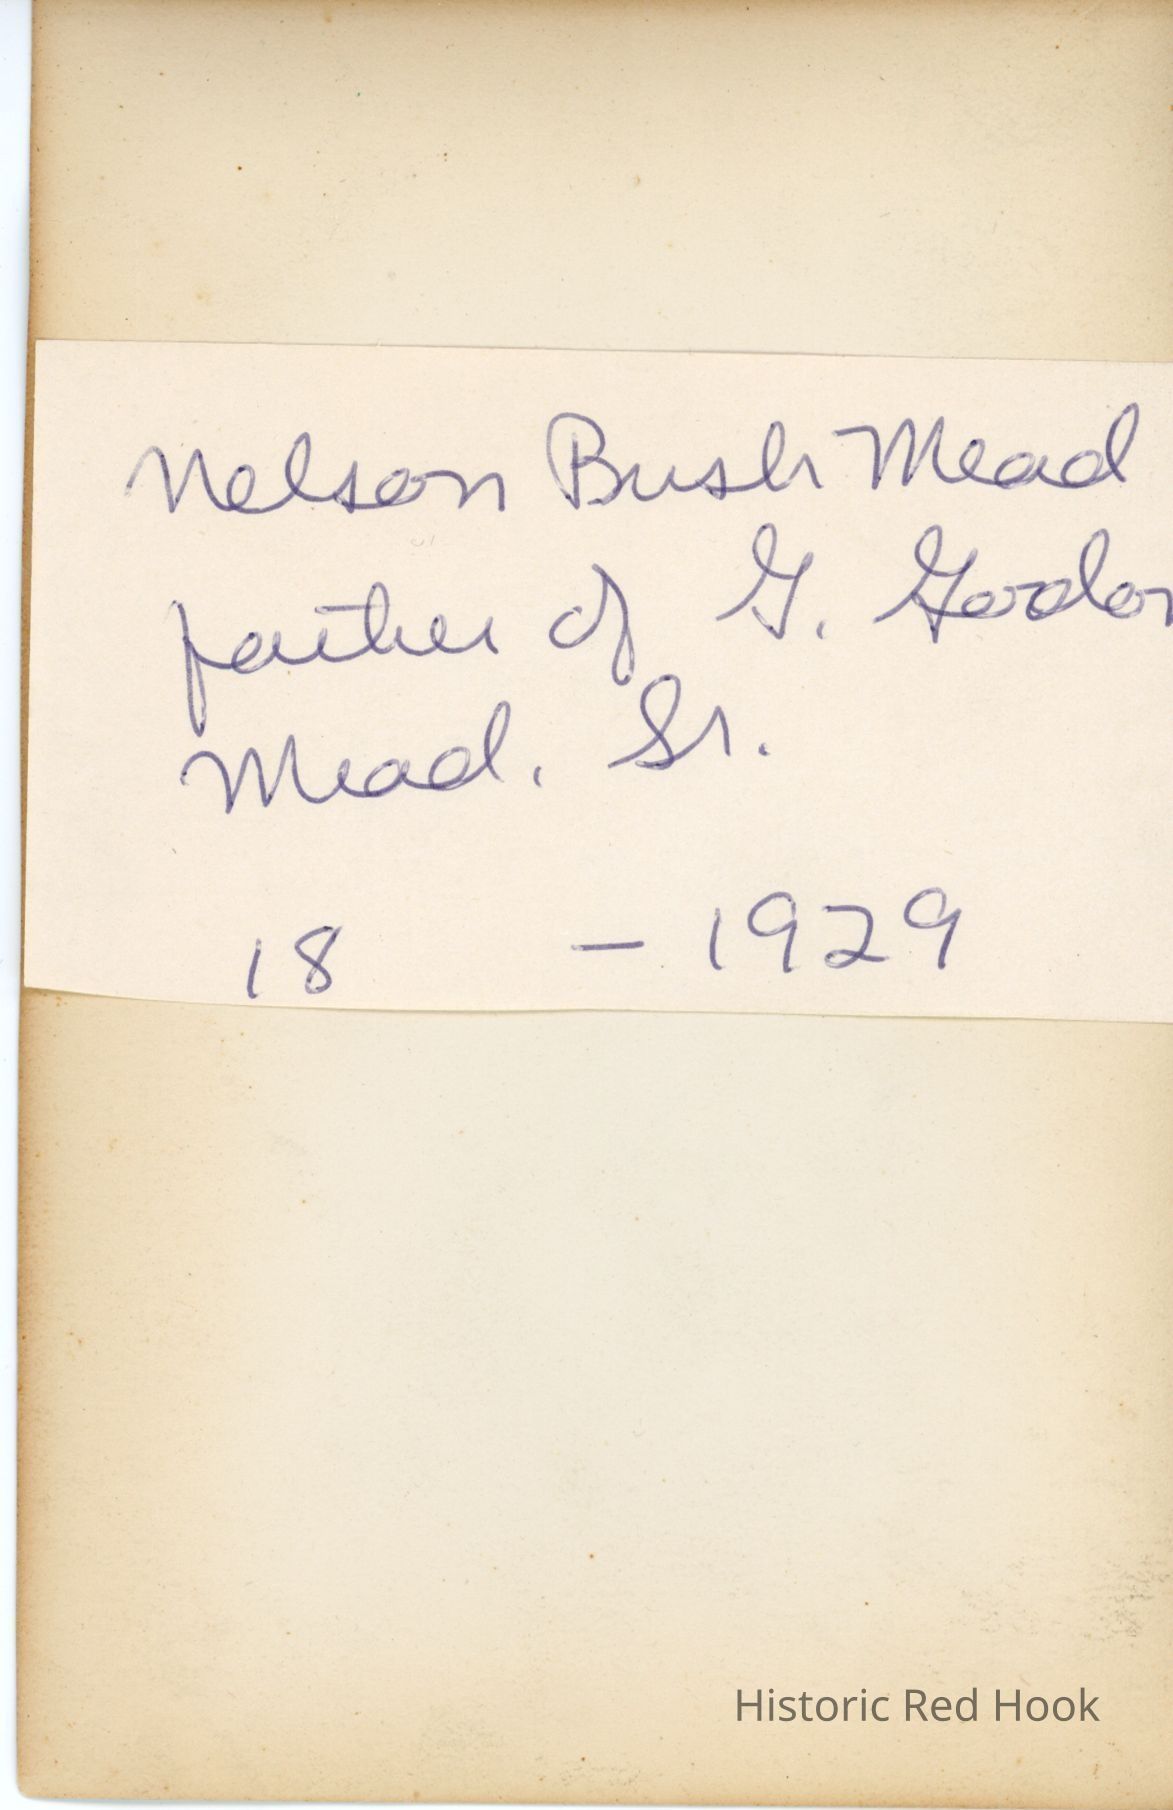 Nelson Bush Mead
father of G. Gordon
Mead. Sr.
18 - 1929
Historic Red Hook